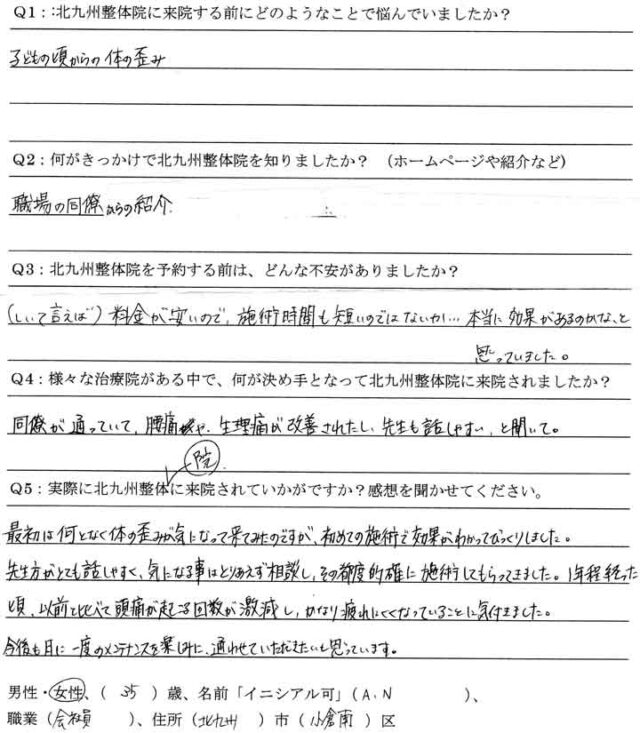 Q1：:北九州整体院に来院する前にどのようなことで悩んでいましたか？
子どもの頃からの体の歪み
Q2：何がきっかけで北九州整体院を知りましたか？　（ホームページや紹介など）
職場の同僚からの紹介.
Q3：北九州整体院を予約する前は、どんな不安がありましたか？
(しいて言えば) 料金が安いので、施術時間も短いのではないか… 本当に効果があるのかな、と
思っていました。
Q4：様々な治療院がある中で、何が決め手となって北九州整体院に来院されましたか？
同僚が通っていて、腰痛や、生理痛が改善されたし、先生も話しやすい、と聞いて。
院
Q5：実際に北九州整体に来院されていかがですか？感想を聞かせてください。
最初は何となく体の歪みが気になって来てみたのですが、初めての施術で効果がわかってびっくりしました。
先生方がとても話しやすく、気になる事はとりあえず相談し、その都度的確に施術してもらってきました。1年程経った
頃、以前と比べて頭痛が起こる回数が激減し、かなり疲れにくくなっていることに気付きました。
今後も月に一度のメンテナンスを楽しみに、通わせていただきたいと思っています。
男性・女性、（ 35 ）歳、名前「イニシアル可」（ A.N ）、
職業（会社員 ）、住所（北九州 ）市（小倉南 ）区